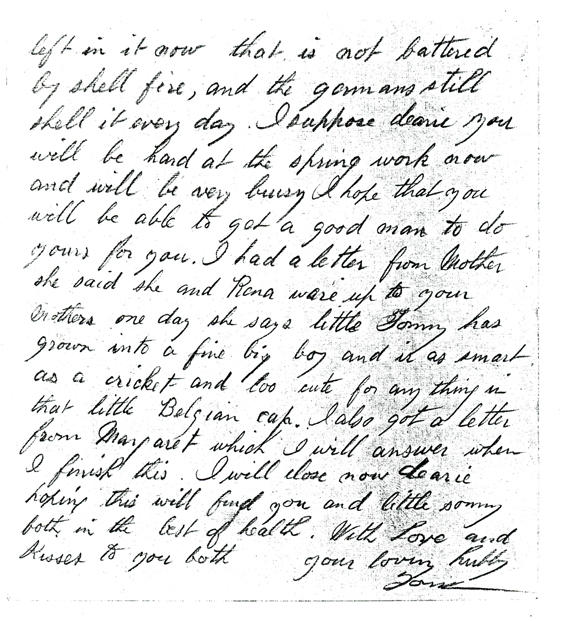 left in it now that is not battered
by shell fire, and the germans still
shell it every day. I suppose dearie you
will be hard at the spring work now
and will be very bussy I hope that you
will be able to get a good man to do
yours for you. I had a letter from Mother
she said she and Rena ware up to your
Mothers one day she says little Sonny has
grown into a fine big boy and is as smart
as a cricket and too cute for any thing in
that little Belgian cap. I also got a letter
from Margaret which I will answer when
I finish this. I will close now dearie
hoping this will find you and little sonny
both in the best of health. With Love and
Kisses to you both your lovin hubby
Tom